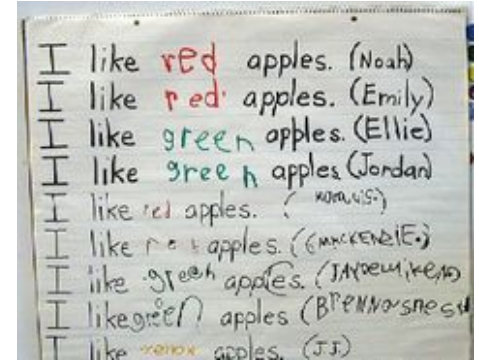 I like red apples. (Noah)
I like red apples. (Emily)
I like green apples. (Ellie)
I like green apples (Jordan)
I like red apples.
I like red apples. (MACKENZIE.)
I like green apples.
I like green apples
I like apples. (J.J.)